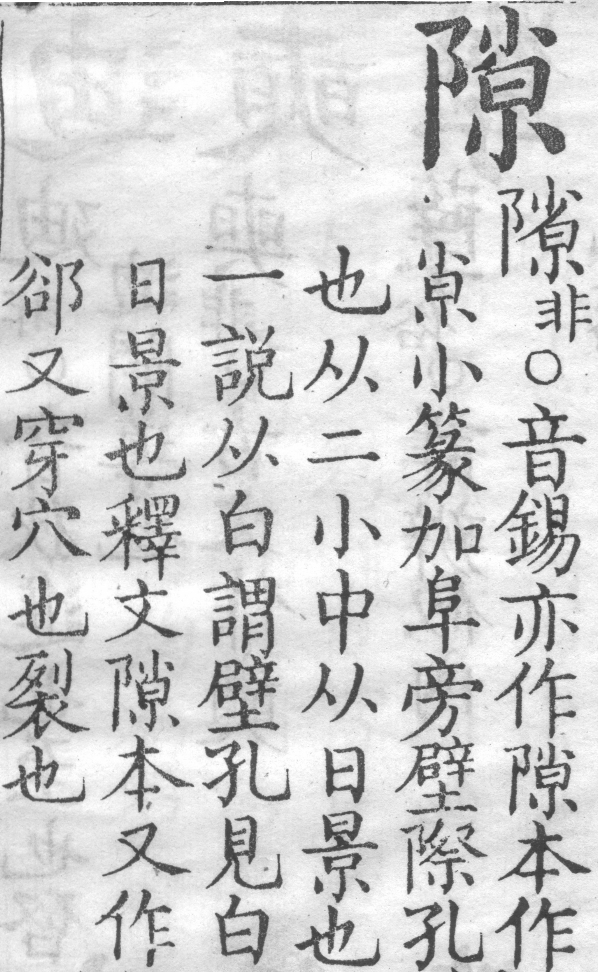 隙
隙非〇音錫亦作隙本作
𡭴小篆加阜旁壁際孔
也从二小中从日景也
一説从白謂壁孔見白
日景也釋文隙本又作
郤又穿穴也裂也